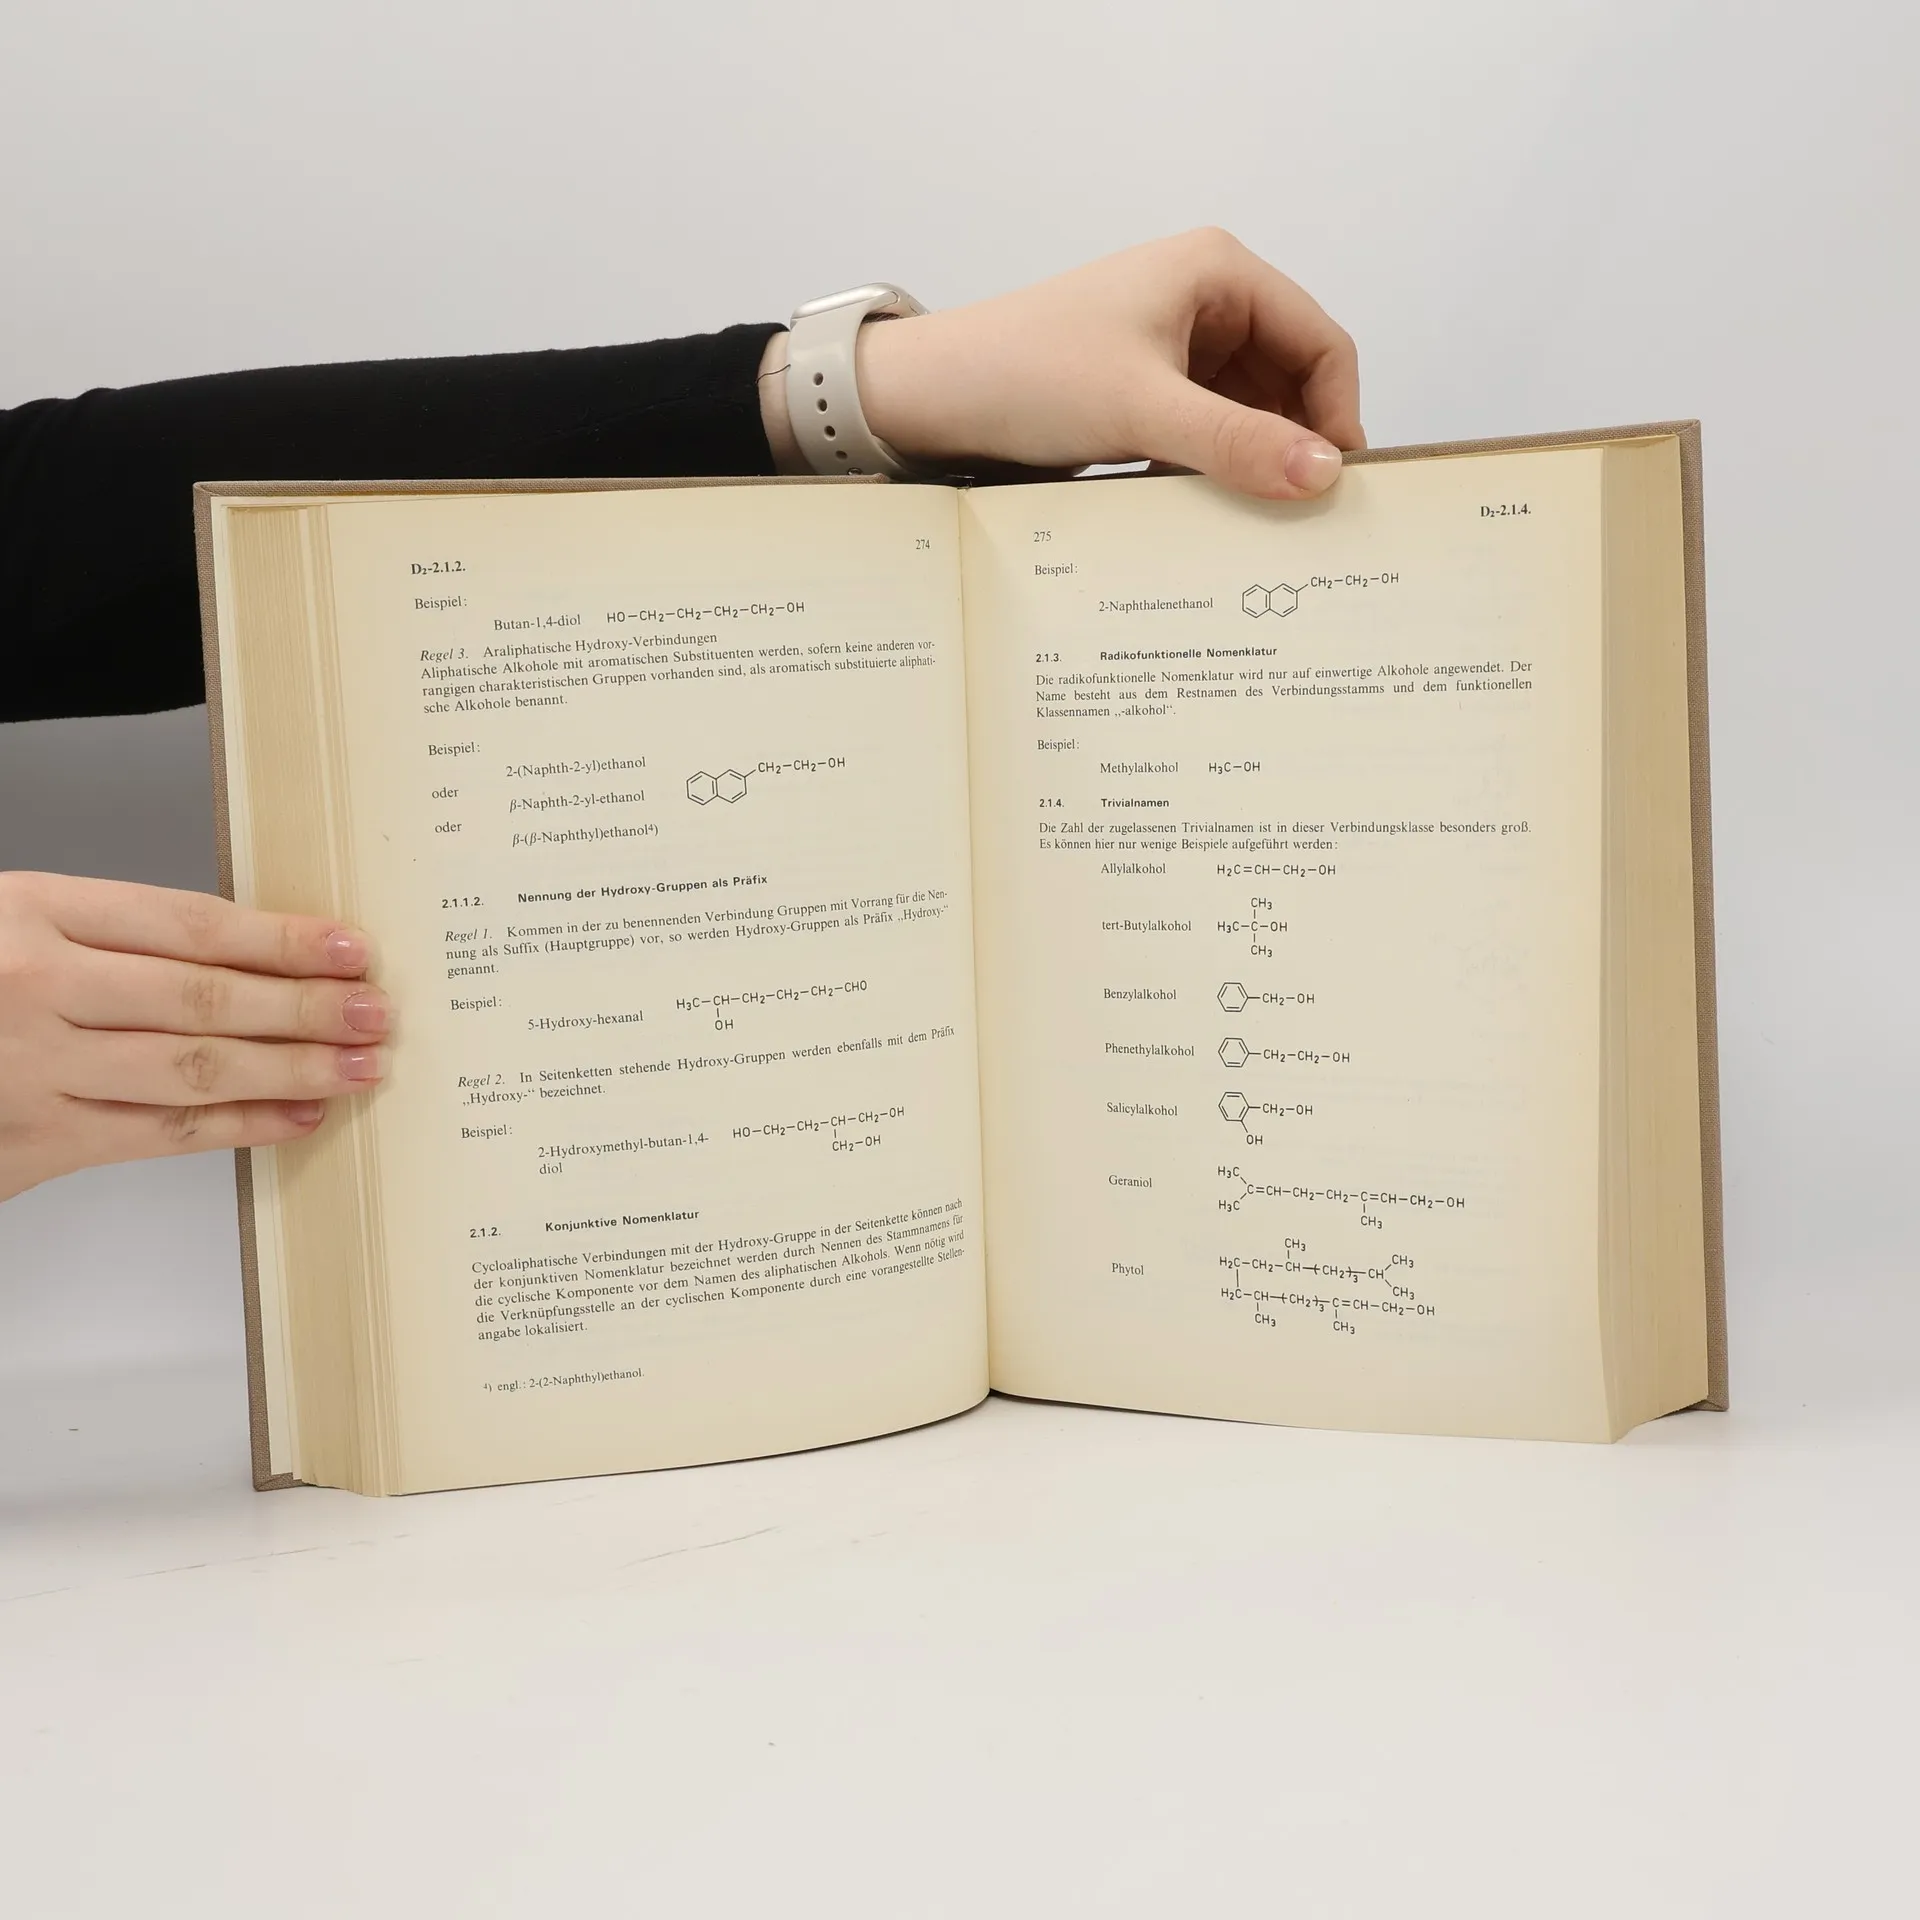 274
D₂-2.1.2.
Beispiel:
Butan-1,4-diol HO—CH₂—CH₂—CH₂—CH₂—OH
Regel 3. Araliphatische Hydroxy-Verbindungen
Aliphatische Alkohole mit aromatischen Substituenten werden, sofern keine anderen vor-
rangigen charakteristischen Gruppen vorhanden sind, als aromatisch substituierte aliphati-
sche Alkohole benannt.
Beispiel:
2-(Naphth-2-yl)ethanol CH₂—CH₂—OH
oder
β-Naphth-2-yl-ethanol
oder
β-(β-Naphthyl)ethanol⁴)
2.1.1.2. Nennung der Hydroxy-Gruppen als Präfix
Regel 1. Kommen in der zu benennenden Verbindung Gruppen mit Vorrang für die Nen-
nung als Suffix (Hauptgruppe) vor, so werden Hydroxy-Gruppen als Präfix „Hydroxy-“
genannt.
Beispiel:
5-Hydroxy-hexanal H₃C—CH—CH₂—CH₂—CH₂—CHO
OH
Regel 2. In Seitenketten stehende Hydroxy-Gruppen werden ebenfalls mit dem Präfix
„Hydroxy-“ bezeichnet.
Beispiel:
2-Hydroxymethyl-butan-1,4- HO—CH₂—CH₂—CH—CH₂—OH
diol CH₂—OH
2.1.2. Konjunktive Nomenklatur
Cycloaliphatische Verbindungen mit der Hydroxy-Gruppe in der Seitenkette können nach
der konjunktiven Nomenklatur bezeichnet werden durch Nennen des Stammnamens für
die cyclische Komponente vor dem Namen des aliphatischen Alkohols. Wenn nötig wird
die Verknüpfungsstelle an der cyclischen Komponente durch eine vorangestellte Stellen-
angabe lokalisiert.
⁴) engl.: 2-(2-Naphthyl)ethanol.
D₂-2.1.4.
275
Beispiel:
2-Naphthalenethanol CH₂—CH₂—OH
2.1.3. Radikofunktionelle Nomenklatur
Die radikofunktionelle Nomenklatur wird nur auf einwertige Alkohole angewendet. Der
Name besteht aus dem Restnamen des Verbindungsstamms und dem funktionellen
Klassennamen „-alkohol“.
Beispiel:
Methylalkohol H₃C—OH
2.1.4. Trivialnamen
Die Zahl der zugelassenen Trivialnamen ist in dieser Verbindungsklasse besonders groß.
Es können hier nur wenige Beispiele aufgeführt werden:
Allylalkohol H₂C=CH—CH₂—OH
CH₃
tert-Butylalkohol H₃C—C—OH
CH₃
Benzylalkohol CH₂—OH
Phenethylalkohol CH₂—CH₂—OH
Salicylalkohol CH₂—OH
OH
H₃C
Geraniol C=CH—CH₂—CH₂—C=CH—CH₂—OH
H₃C CH₃
CH₃ CH₃
Phytol H₂C—CH₂—CH—(CH₂)₃—CH
CH₃
H₂C—CH—(CH₂)₃—C=CH—CH₂—OH
CH₃ CH₃